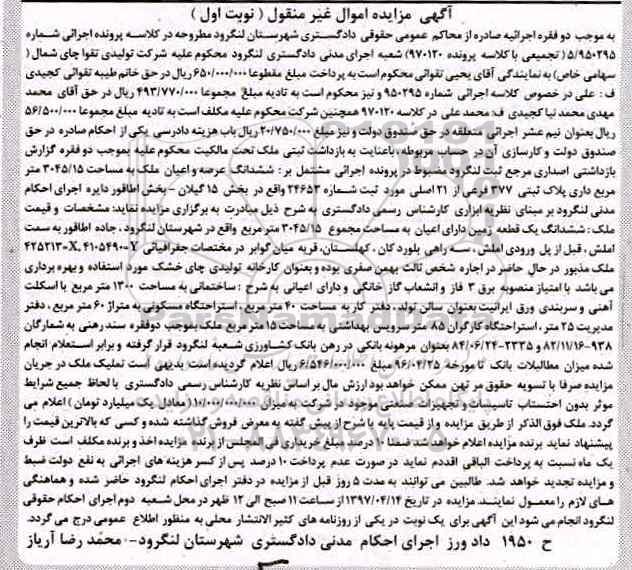 آگهی مزایده اموال غیر منقول ( نوبت اول )
به موجب دو فقره اجرائیه صادره از محاکم عمومی حقوقی دادگستری شهرستان لنگرود مطروحه در کلاسه پرونده اجرائی شماره
۵/۹۵۰۲۹۵ ( تجمیعی با کلاسه پرونده ۹۷۰۱۲۰) شعبه اجرای مدنی دادگستری لنگرود محکوم علیه شرکت تولیدی تقوا چای شمال (
سهامی خاص) به نمایندگی آقای یحیی تقوائی محکوم است به پرداخت مبلغ مقطوعا ۶۵۰/۰۰۰/۰۰۰ ریال در حق خانم طیبه تقوائی کجیدی
ف : علی در خصوص کلاسه اجرائی شماره ۹۵۰۲۹۵ و نیز محکوم است به تادیه مبلغ مجموعا ۴۹۳/۷۷۰/۰۰۰ ریال در حق آقای محمد
مهدی محمد نیا کجیدی ف: محمد علی در کلاسه ۹۷۰۱۲۰ همچنین شرکت محکوم علیه مکلف است به تادیه مبلغ مجموعا ۵۶/۵۰۰/۰۰۰
ریال بعنوان نیم عشر اجرائی متعلقه در حق صندوق دولت و نیز مبلغ ۲۰/۷۵۰/۰۰۰ ریال باب هزینه دادرسی یکی از احکام صادره در حق
صندوق دولت و کارسازی آن در حساب مربوطه، باعنایت به بازداشت ثبتی ملک تحت مالکیت محکوم علیه بموجب دو فقره گزارش
بازداشتی اصداری مرجع ثبت لنگرود مضبوط در پرونده اجرائی مشتمل بر : ششدانگ عرصه و اعیان ملک به مساحت ۳۰۴۵/۱۵ متر
مربع داری پلاک ثبتی ۳۷۷ فرعی از ۲۱ اصلی مورد ثبت شماره ۲۴۶۵۳ واقع در بخش ۱۵ گیلان - بخش اطاقور دایره اجرای احکام
مدنی لنگرود بر مبنای نظریه ابرازی کارشناس رسمی دادگستری به شرح ذیل مبادرت به برگزاری مزایده نماید: مشخصات و قیمت
ملک : ششدانگ یک قطعه زمین دارای اعیان به مساحت مجموع ۳۰۴۵/۱۵ متر مربع واقع در شهرستان لنگرود ، جاده اطاقور به سمت
املش ، قبل از پل ورودی املش ، سه راهی بلورد کان ، کهلستان، قریه میان گوابر در مختصات جغرافیائی Y=۴۱۰۵۴۹۰ ،X=۴۲۵۲۱۳
ملک مذبور در حال حاضر در اجاره شخص ثالث بهمن صفری بوده و بعنوان کارخانه تولیدی چای خشک مورد استفاده و بهره برداری
می باشد با امتیاز منصوبه برق ۳ فاز و انشعاب گاز خانگی و دارای اعیانی به شرح : ساختمانی به مساحت ۱۳۰۰ متر مربع با اسکلت
آهنی و سربندی ورق ایرانیت بعنوان سالن تولد، دفتر کار به مساحت ۴۰ متر مربع ، استراحتگاه مسکونی به متراژ ۶۰ متر مربع ، دفتر
مدیریت ۲۵ متر ، استراحتگاه کارگران ۸۵ متر سرویس بهداشتی به مساحت ۱۵ متر مربع ملک بموجب دوفقره سند رهنی به شمارگان
۹۳۸-۸۲/۱۱/۱۶ و ۲۳۳۵-۸۴/۰۶/۲۴ بعنوان مرهونه بانکی در رهن بانک کشاورزی شعبه لنگرود قرار گرفته و برابر استعلام انجام
شده میزان مطالبات بانک تا مورخه ۹۶/۰۴/۲۵ مبلغ ۶/۵۴۶/۰۰۰/۰۰۰ ریال اعلام گردیده است بدیهی است تملیک ملک در جریان
مزایده صرفا با تسویه حقوق مرتهن ممکن خواهد بود ارزش مال بر اساس نظریه کارشناس رسمی دادگستری با لحاظ جمیع شرایط
موثر بدون احتساب تاسیسات و تجهیزات صنعتی موجود در شرکت به میزان ۱۱۰/۰۰۰/۰۰۰/۰۰۰( معادل یک میلیارد تومان ) اعلام می
گردد. ملک فوق الذکر از طریق مزایده و از قیمت پایه با شرح از پیش گفته به معرض فروش گذاشته شده و کسی که بالاترین قیمت را
پیشنهاد نماید برنده مزایده اعلام خواهد شد ضمنا ۱۰ درصد مبلغ خریداری فی المجلس از برنده مزایده اخذ و برنده مکلف است ظرف
یک ماه نسبت به پرداخت الباقی اقددم نماید در صورت عدم پرداخت ۱۰ درصد پس از کسر هزینه های اجرائی به نفع دولت ضبط
و مزایده تجدید خواهد شد. طالبین می توانند به مدت ۵ روز قبل از مزایده در دفتر اجرای احکام لنگرود حاضر شده و هماهنگی
های لازم را معمول نمایند. مزایده در تاریخ ۱۳۹۷/۰۴/۱۴ از ساعت ۱۱ صبح الی ۱۲ ظهر در محل شعبه دوم اجرای احکام حقوقی
لنگرود انجام می شود این آگهی برای یک نوبت در یکی از روزنامه های کثیر الانتشار محلی به منظور اطلاع عمومی درج می گردد.
ح ۱۹۵۰ داد ورز اجرای احکام مدنی دادگستری شهرستان لنگرود- محمد رضا آریاز